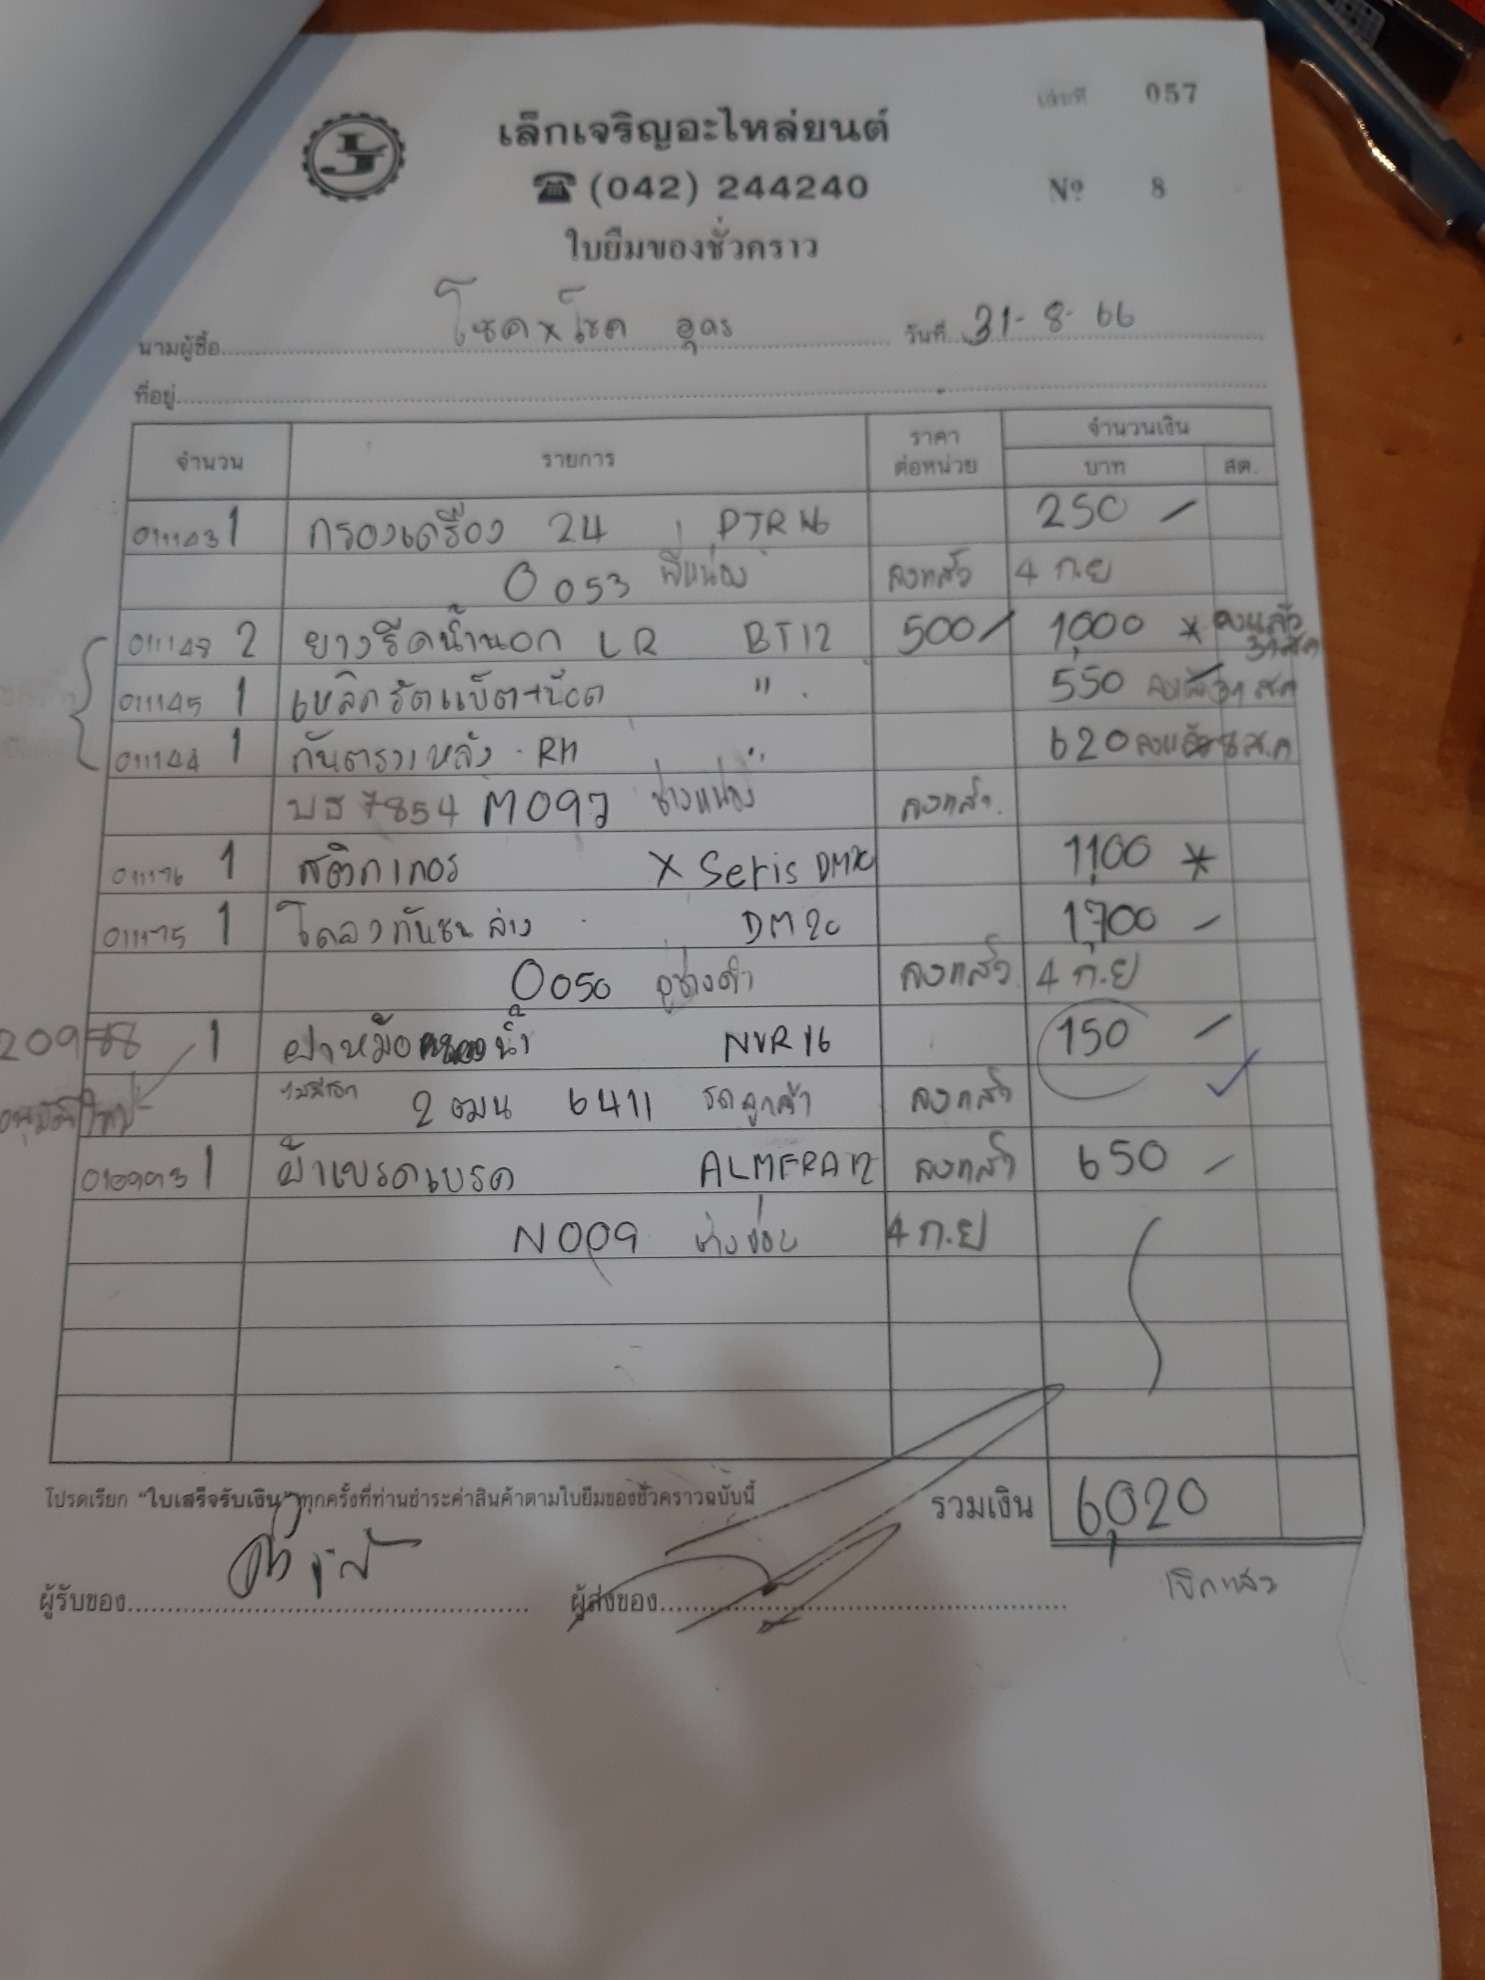 เล่มที่ 057
เล็กเจริญอะไหล่ยนต์
☎ (042) 244240
Nº 8
ใบยืมของชั่วคราว
นามผู้ซื้อ โชคxโชค อุดร วันที่ 31-8-66
ที่อยู่
จำนวน รายการ ราคาต่อหน่วย จำนวนเงิน
บาท สต.
011143 1 กรองเครื่อง 24 PJR16 250 -
O 053 พี่หน่อง ลงแล้ว 4 ก.ย
011148 2 ยางรีดน้ำนอก LR BT12 500 1,000 * ลงแล้ว 31 สค
011145 1 เหล็กรัดแบ็ต+น๊อต " 550 ลงแล้ว 31 ส.ค
011144 1 กันตรวเหลัง RH " 620
บธ 7854 M097 ลงแล้ว
011176 1 สติกเกอร X Seris DM20 1,100 *
011175 1 โครงกันชนล่าง DM20 1,700 -
O050 อู่ช่างดำ ลงแล้ว 4 ก.ย
1 ฝาหม้อ น้ำ NVR16 150 -
ไม่มีเบิก 2 ฒน 6411 รถลูกค้า ลงแล้ว
1 ผ้าเบรคเบรค ALMERA12 ลงแล้ว 650 -
N009 4 ก.ย
โปรดเรียก "ใบเสร็จรับเงิน" ทุกครั้งที่ท่านชำระค่าสินค้าตามใบยืมของชั่วคราวฉบับนี้
รวมเงิน 6,020
เบิกแล้ว
ผู้รับของ ผู้ส่งของ